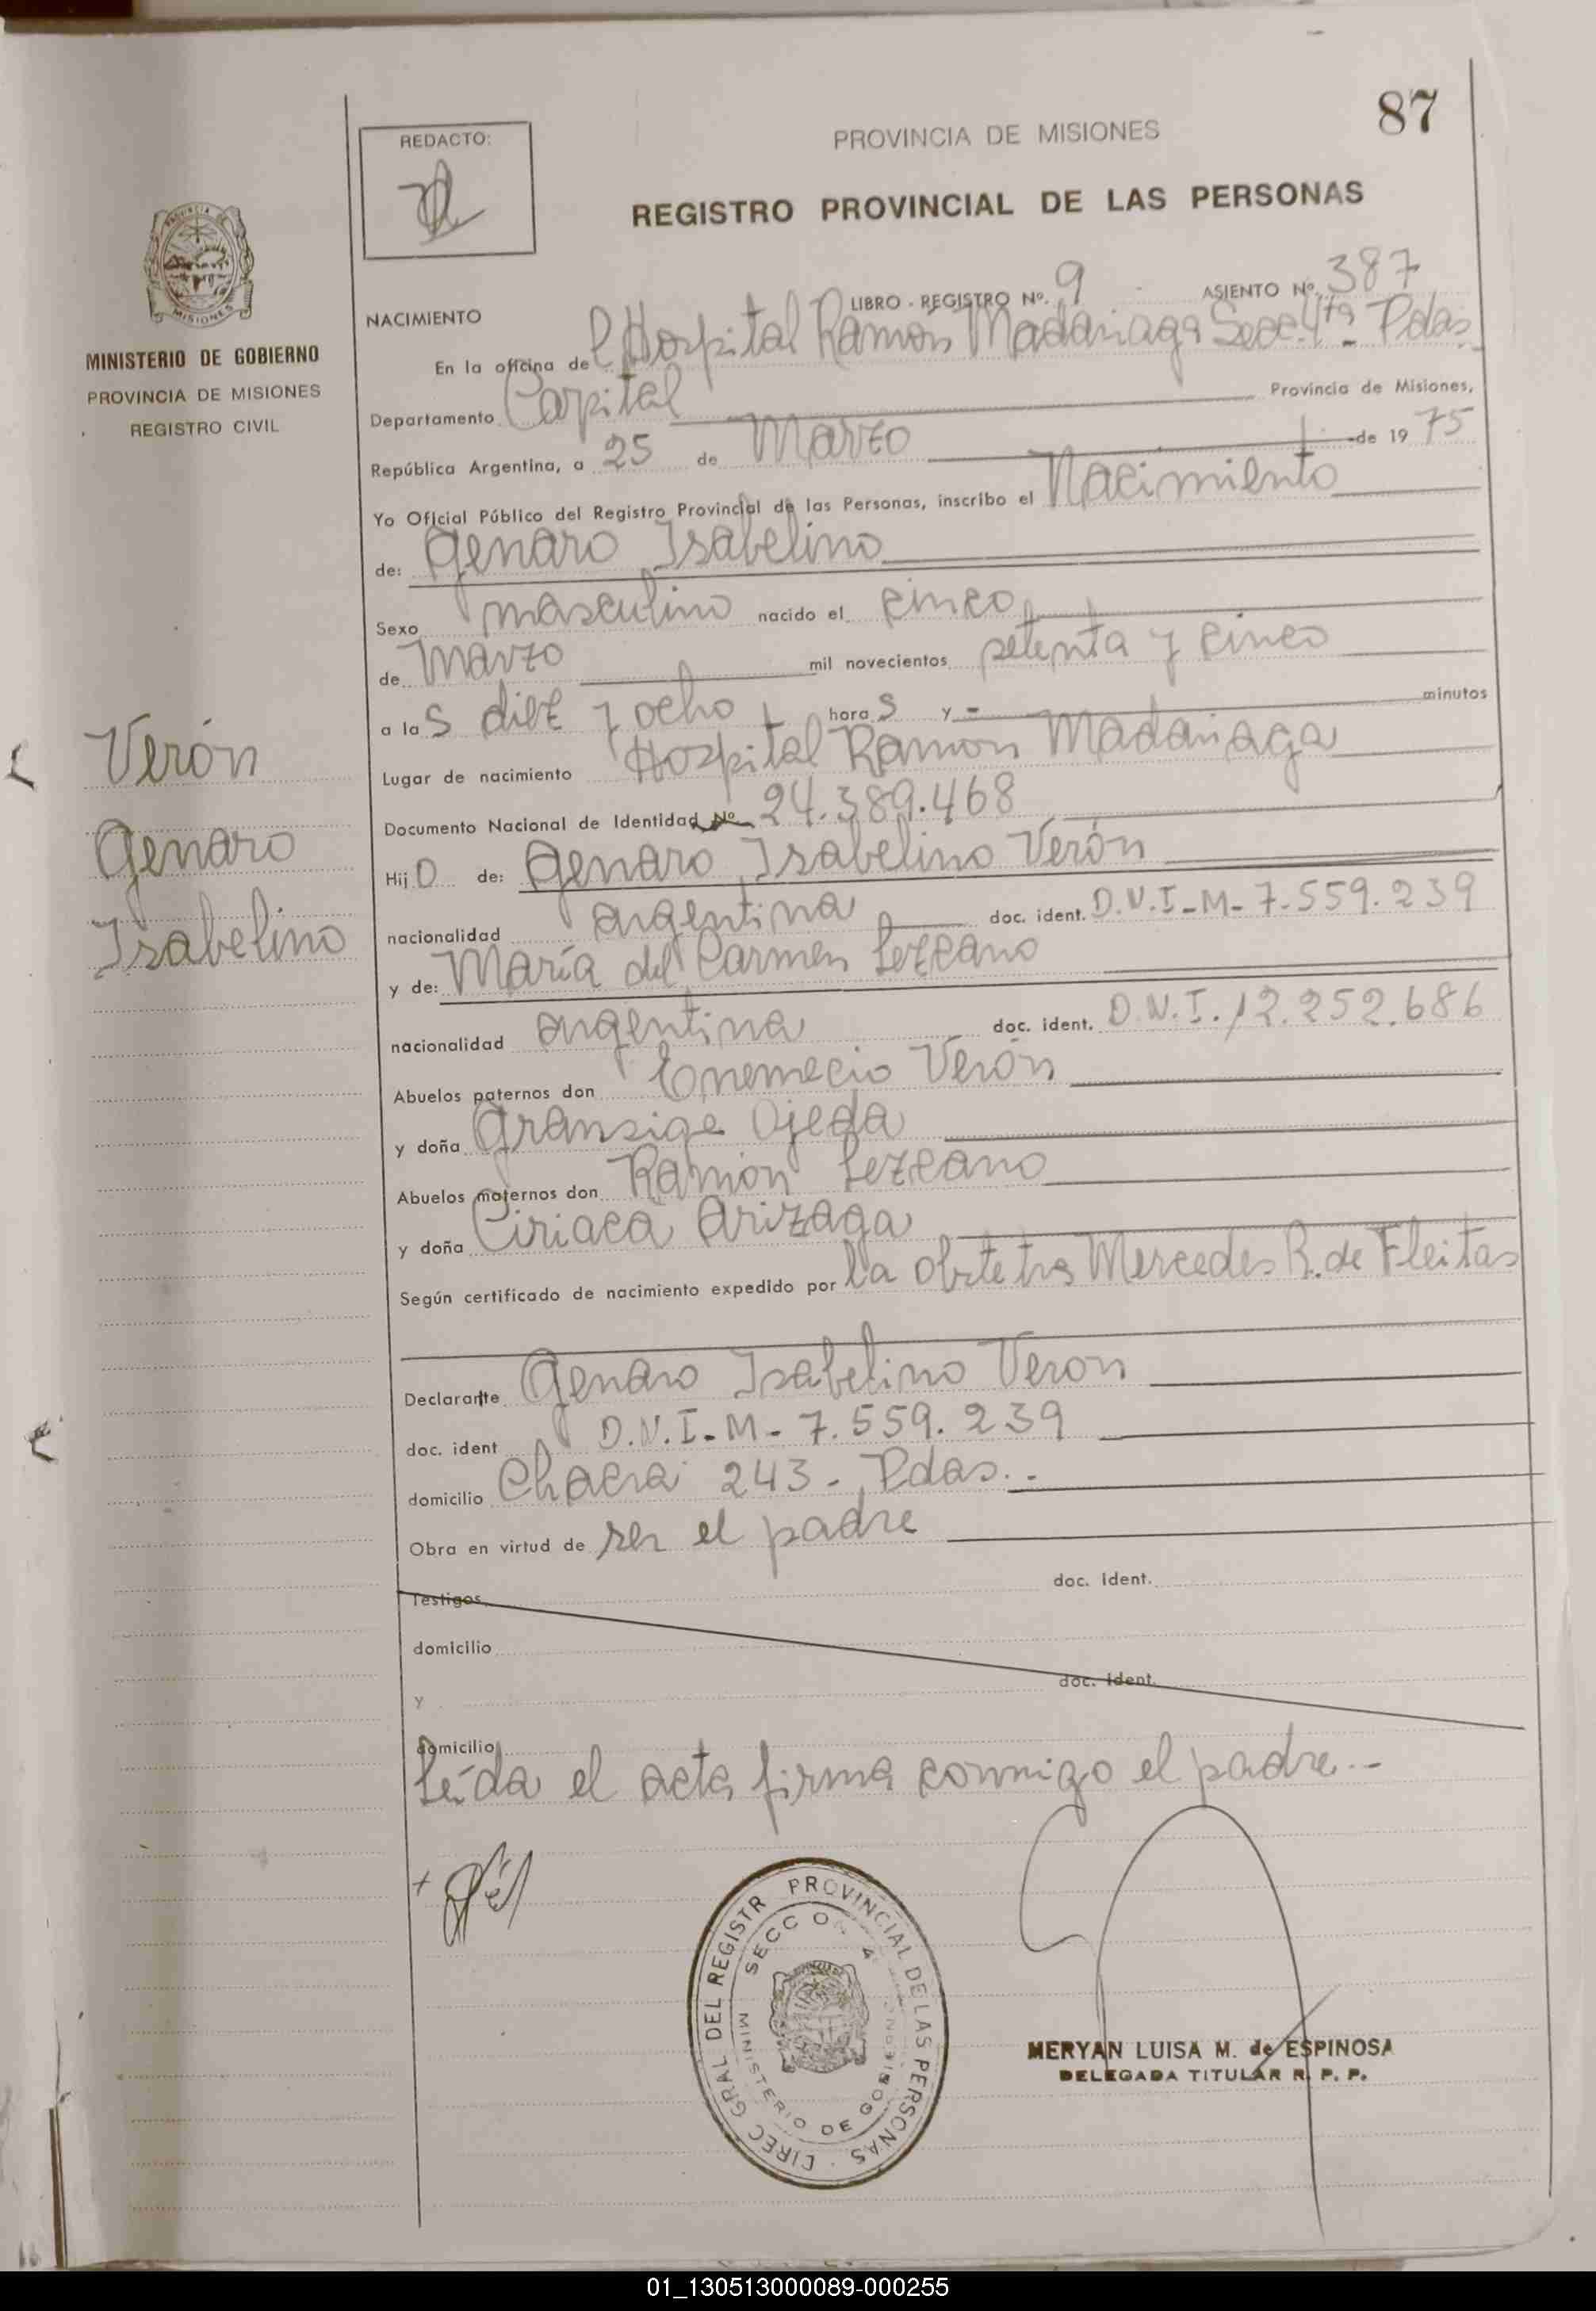 87
REDACTO:
PROVINCIA DE MISIONES
REGISTRO PROVINCIAL DE LAS PERSONAS
MINISTERIO DE GOBIERNO
PROVINCIA DE MISIONES
REGISTRO CIVIL
NACIMIENTO LIBRO - REGISTRO Nº. 9 ASIENTO Nº. 387
En la oficina del Hospital Ramón Madariaga Secc. 4ta - Pdas.
Departamento Capital Provincia de Misiones,
República Argentina, a 25 de Marzo de 1975
Yo Oficial Público del Registro Provincial de las Personas, inscribo el Nacimiento
de: Genaro Isabelino
Sexo masculino nacido el cinco
de Marzo mil novecientos setenta y cinco
a las diez y ocho horas y - minutos
Lugar de nacimiento Hospital Ramon Madariaga
Documento Nacional de Identidad Nº 24.389.468
Hijo de: Genaro Isabelino Verón
nacionalidad argentina doc. ident. D.N.I-M-7.559.239
y de: María del Carmen Lezcano
nacionalidad argentina doc. ident. D.N.I. 12.252.686
Abuelos paternos don Enemecio Verón
y doña Ojeda
Abuelos maternos don Ramón Lezcano
y doña Ciriaca Arizaga
Según certificado de nacimiento expedido por la obstetra Mercedes R. de Fleitas
Declarante Genaro Isabelino Veron
doc. ident D.N.I-M-7.559.239
domicilio Chacra 243 - Pdas. -
Obra en virtud de ser el padre
Testigos doc. ident.
domicilio
y doc. ident.
domicilio
Leída el acta firma conmigo el padre.-
Verón
Genaro
Isabelino
DIREC GRAL DEL REGISTR PROVINCIAL DE LAS PERSONAS
SECCION 4ª
MINISTERIO DE GOBIERNO
MERYAN LUISA M. de ESPINOSA
DELEGADA TITULAR R. P. P.
01_130513000089-000255